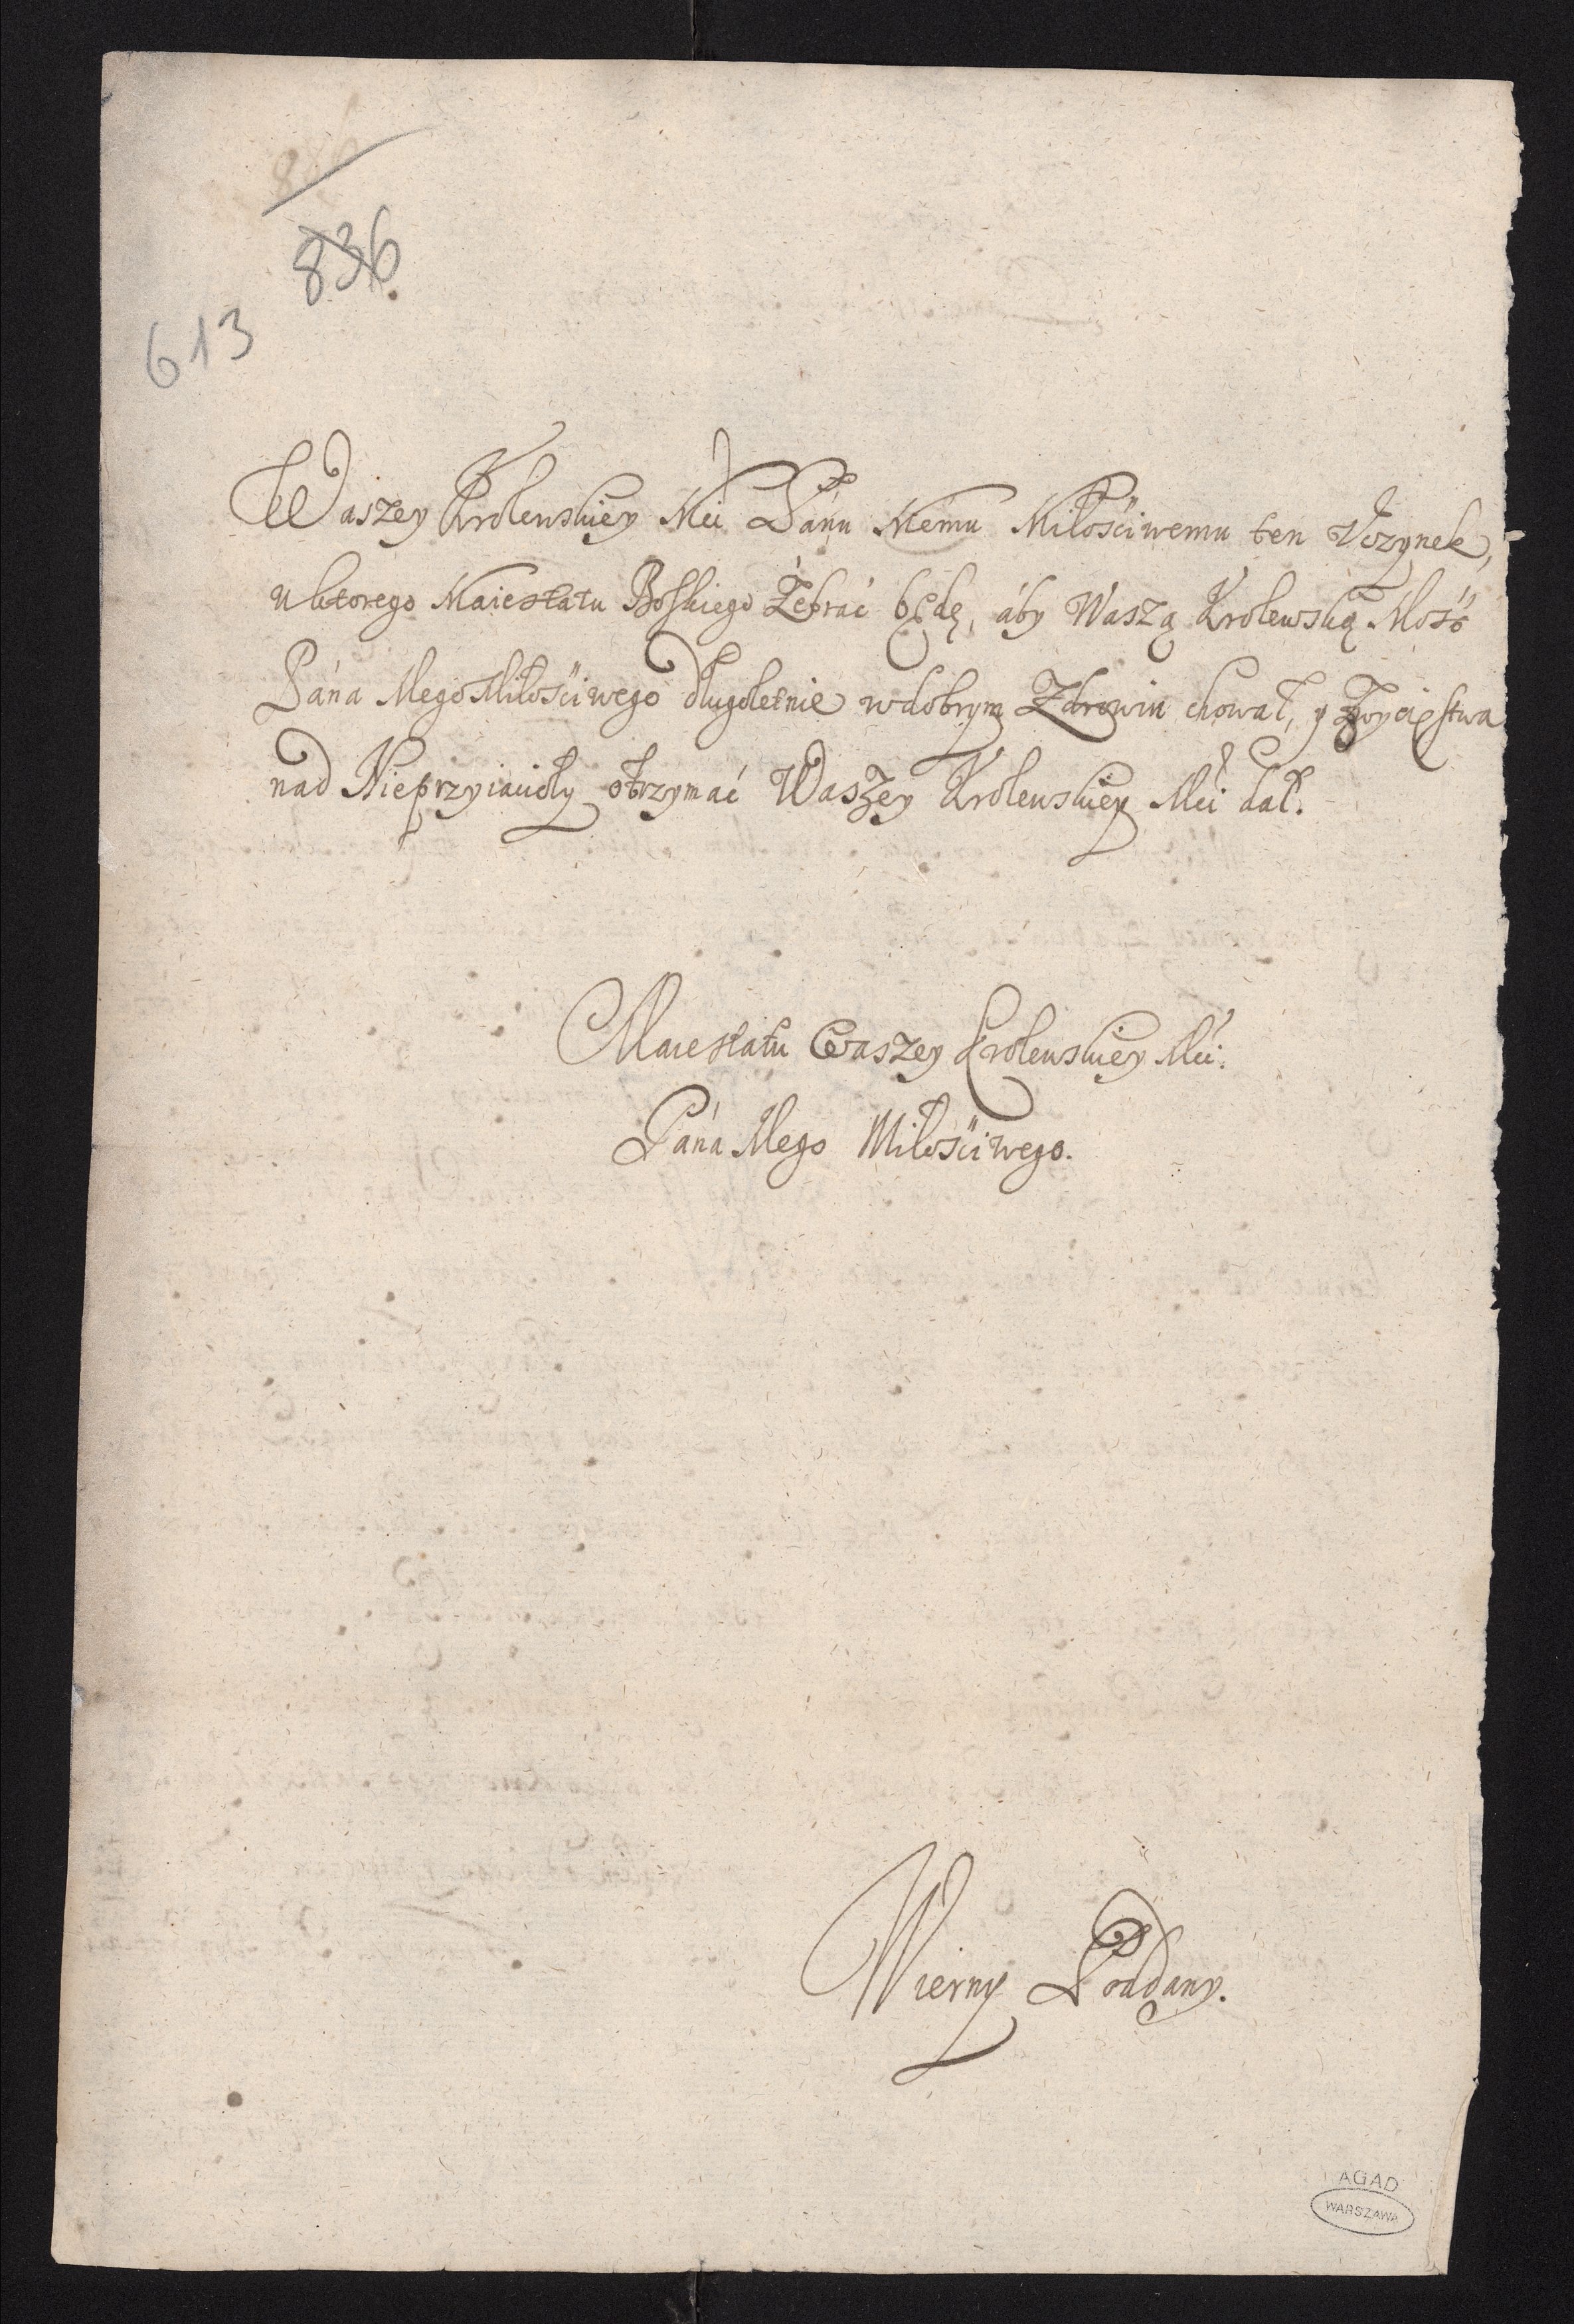 836
613
Waszey Krolewskiey Mci Pánu Memu Miłościwemu ten Vczynek,
u ktorego Maiestatu Boskiego Żebrać będę, áby Waszą Krolewską Mość
Pána Mego Miłościwego długoletnie w dobrym Zdrowiu chował, y Zwycięstwa
nad Nieprzyiacioły otrzymać Waszey Krolewskiey Mci dał.
Maiestatu Waszey Krolewskiey Mci.
Pána Mego Miłościwego.
Wierny Poddany.
AGAD
WARSZAWA